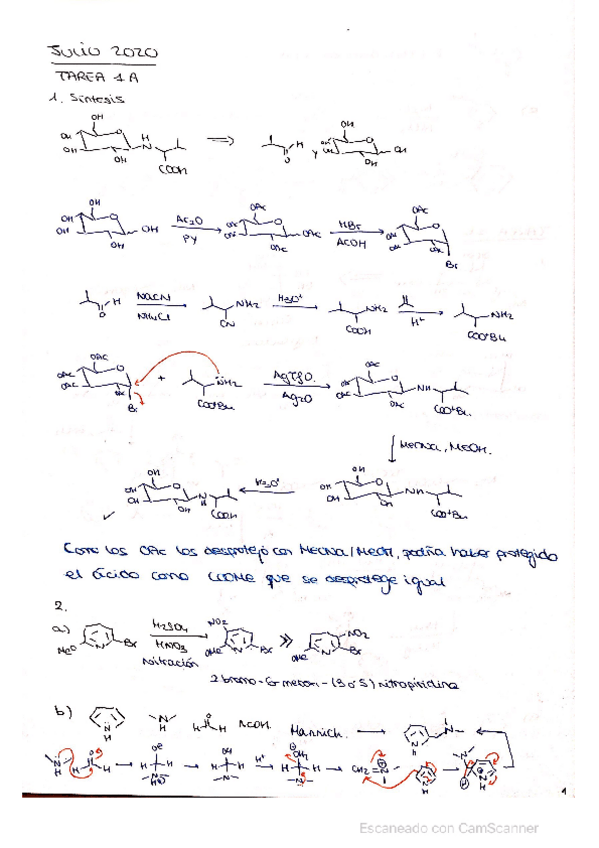 JULIO 2020
TAREA 1A
1. Síntesis
OH
OH
OH
OH
H
N
O
COOH
⇒
H
O
y
OH
OH
OH
OH
O
OH
OH
OH
OH
O
OH
Ac2O
PY
OAc
OAc
O
OAc
OAc
HBr
AcOH
OAc
O
OAc
OAc
Br
H
O
NaCN
NH4Cl
NH2
CN
H3O+
NH2
COOH
H+
NH2
COOtBu
OAc
OAc
OAc
O
OAc
Br
+
NH2
COOtBu
AgTfO.
Ag2O
OAc
OAc
O
OAc
NH
COOtBu.
MeONa, MeOH.
OH
OH
OH
O
OH
N
H
COOH
H3O+
OH
OH
OH
O
OH
NH
COOtBu
Como los OAc los desprotejo con MeONa/MeOH, podría haber protegido
el ácido como COOMe que se desprotege igual
2.
a)
MeO
N
Br
H2SO4
HNO3
Nitración
NO2
OMe
N
Br
>>
NO2
OMe
N
Br
2 bromo-6-metoxi-(3 o 5) nitropiridina
b)
N
H
N
H
O
H
H
AcOH.
Mannich.
N
H
N
N
H
H
O
H
H
H
N
OH
H
H
N
H+
OH2
H
H
N
CH2=N
N
H
N
H
N
H
1
Escaneado con CamScanner